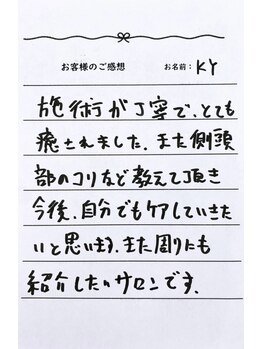 お客様のご感想
お名前： KY
施術が丁寧で、とても
癒されました。また側頭
部のコリなど教えて頂き
今後、自分でもケアしていきた
いと思います。また周りにも
紹介したいサロンです。